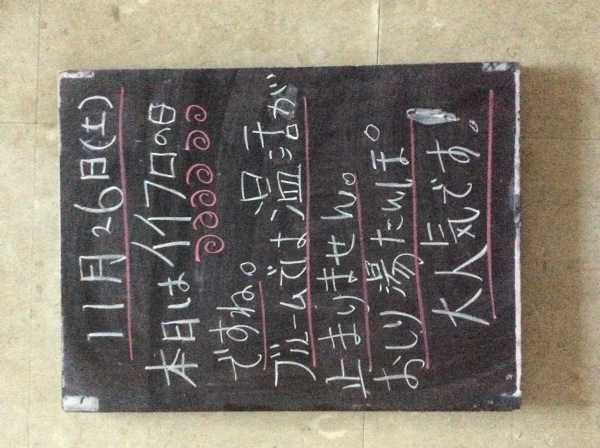 11月26日(土)
本日はイイフロの日
ですね。
ブルームでは温活が
止まりません。
おしり湯たんぽ。
大人気です。